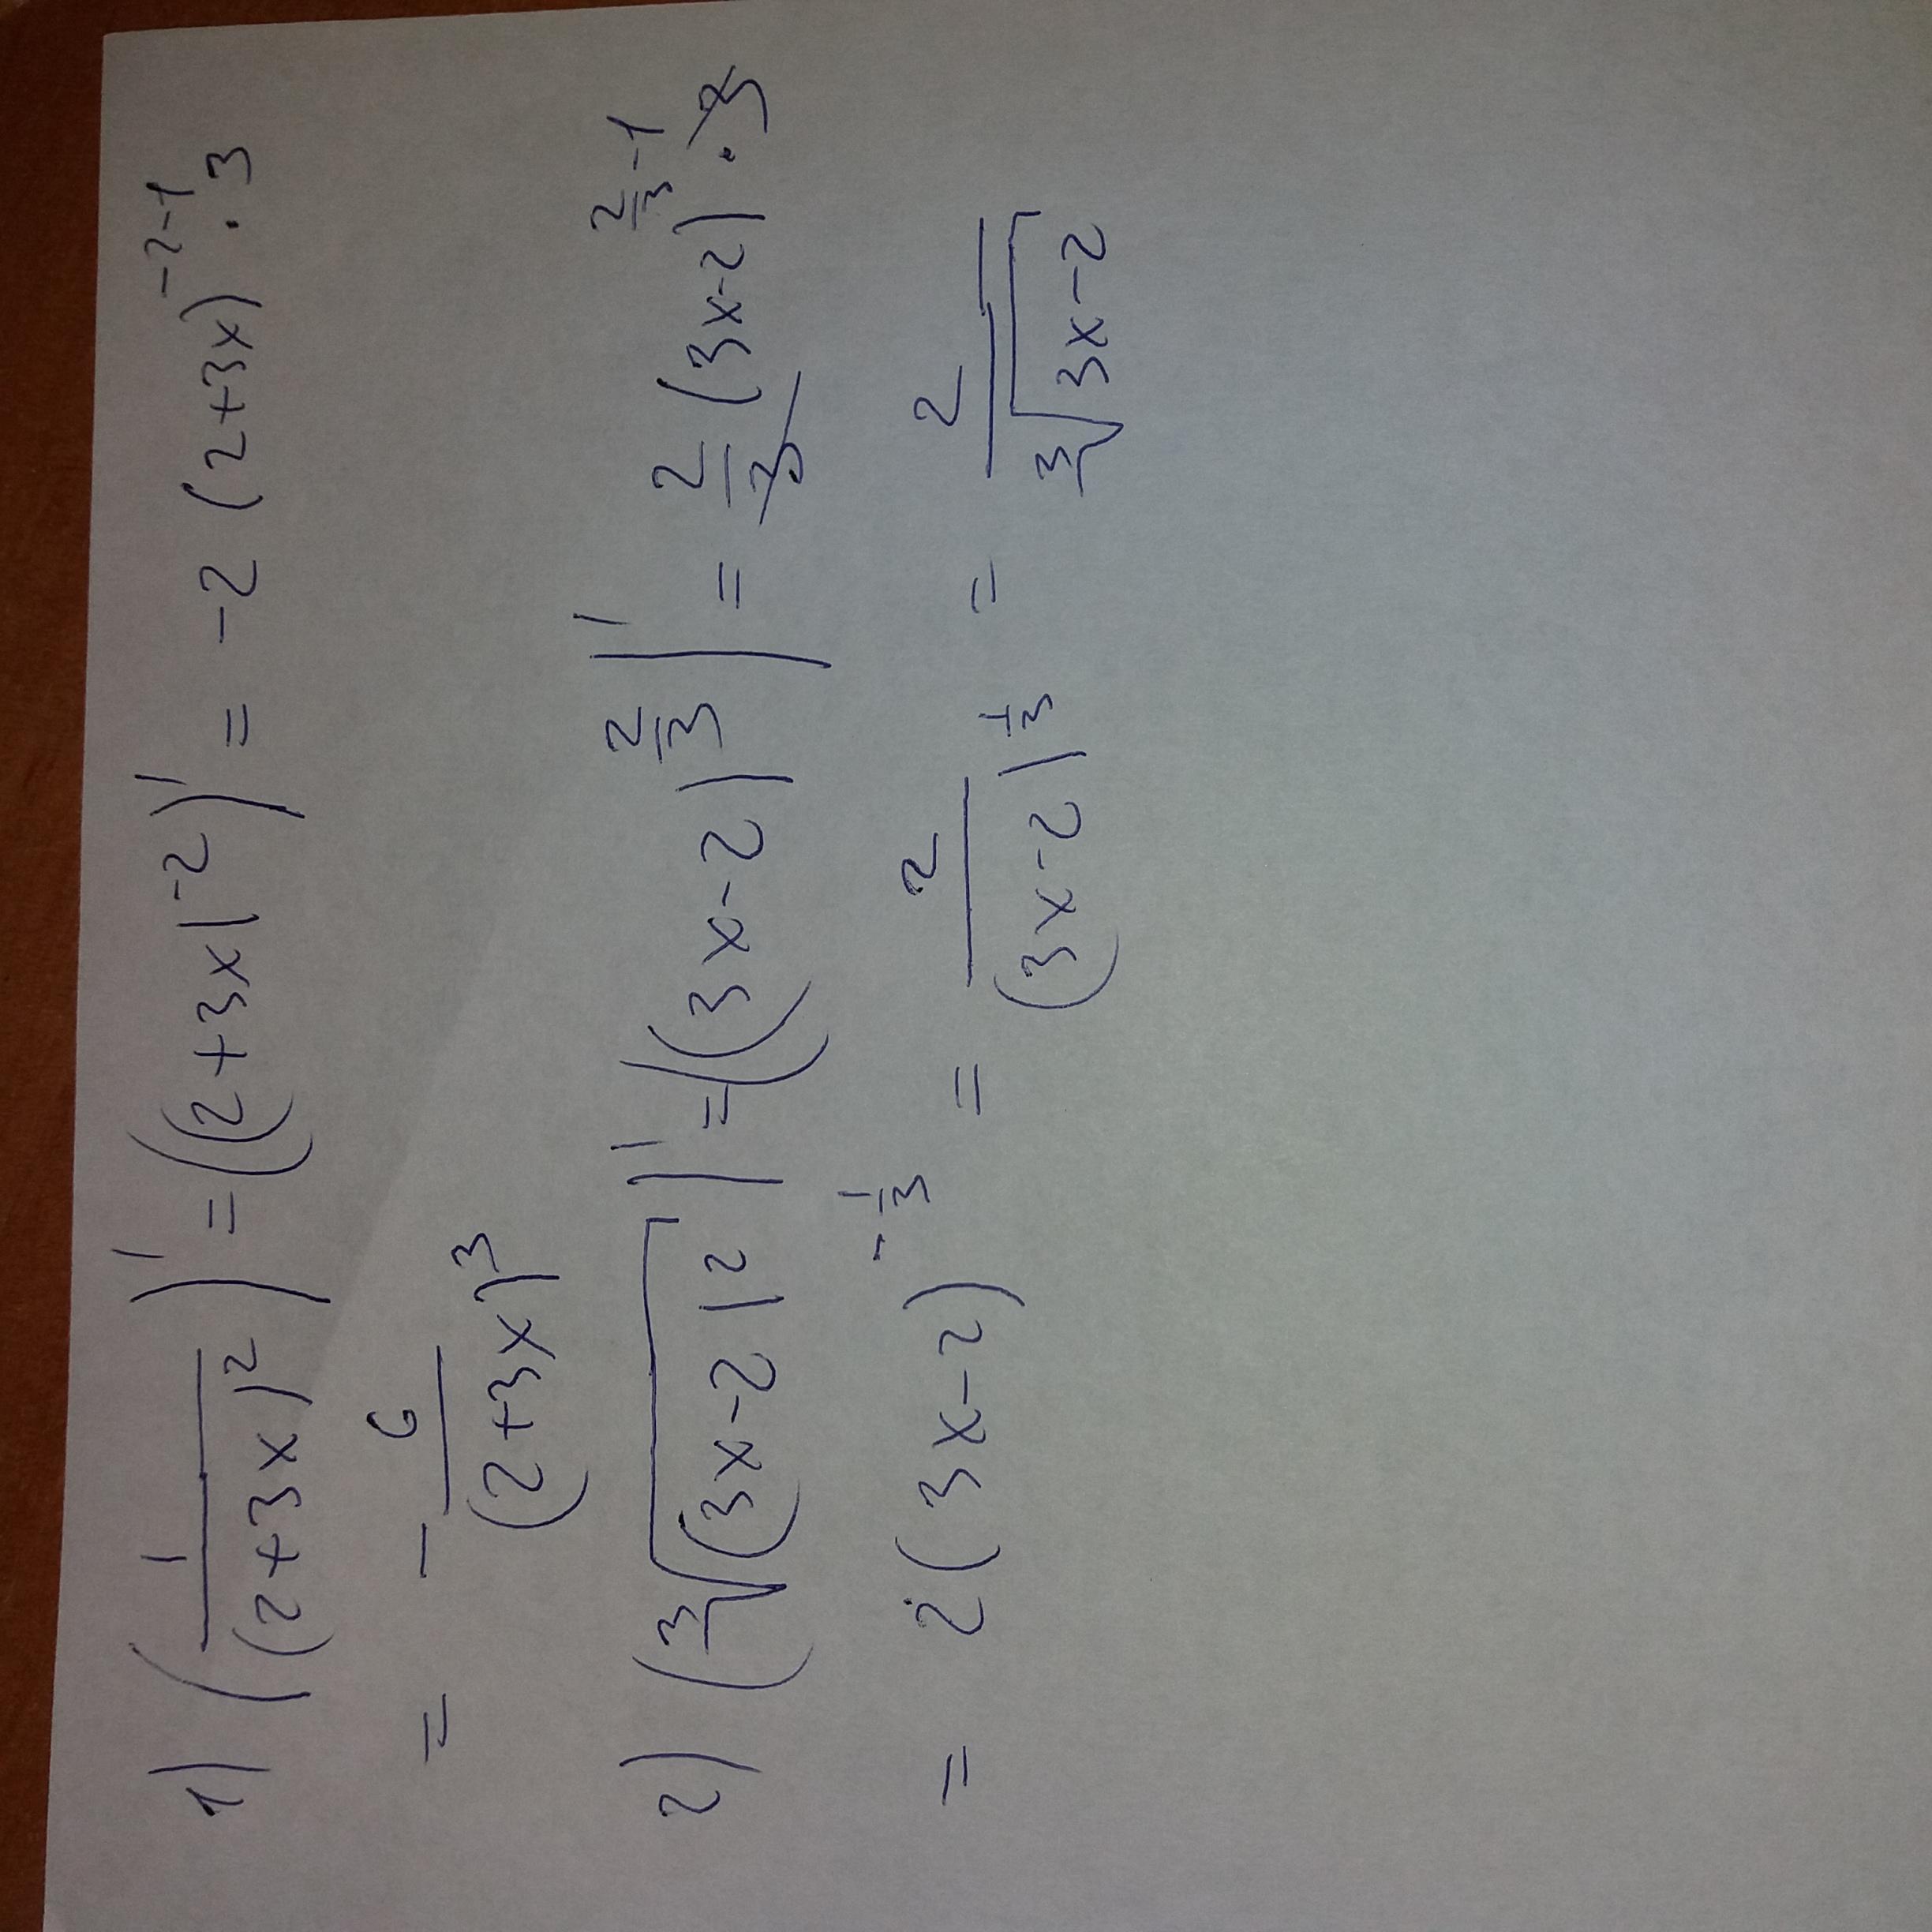 1) (1/(2+3x)²)' = ((2+3x)⁻²)' = -2 (2+3x)^(-2-1) · 3
= - 6/(2+3x)³
2) (∛((3x-2)²))' = ((3x-2)^(2/3))' = 2/3 (3x-2)^(2/3-1) · 3
= 2(3x-2)^(-1/3) = 2/(3x-2)^(1/3) = 2/∛(3x-2)